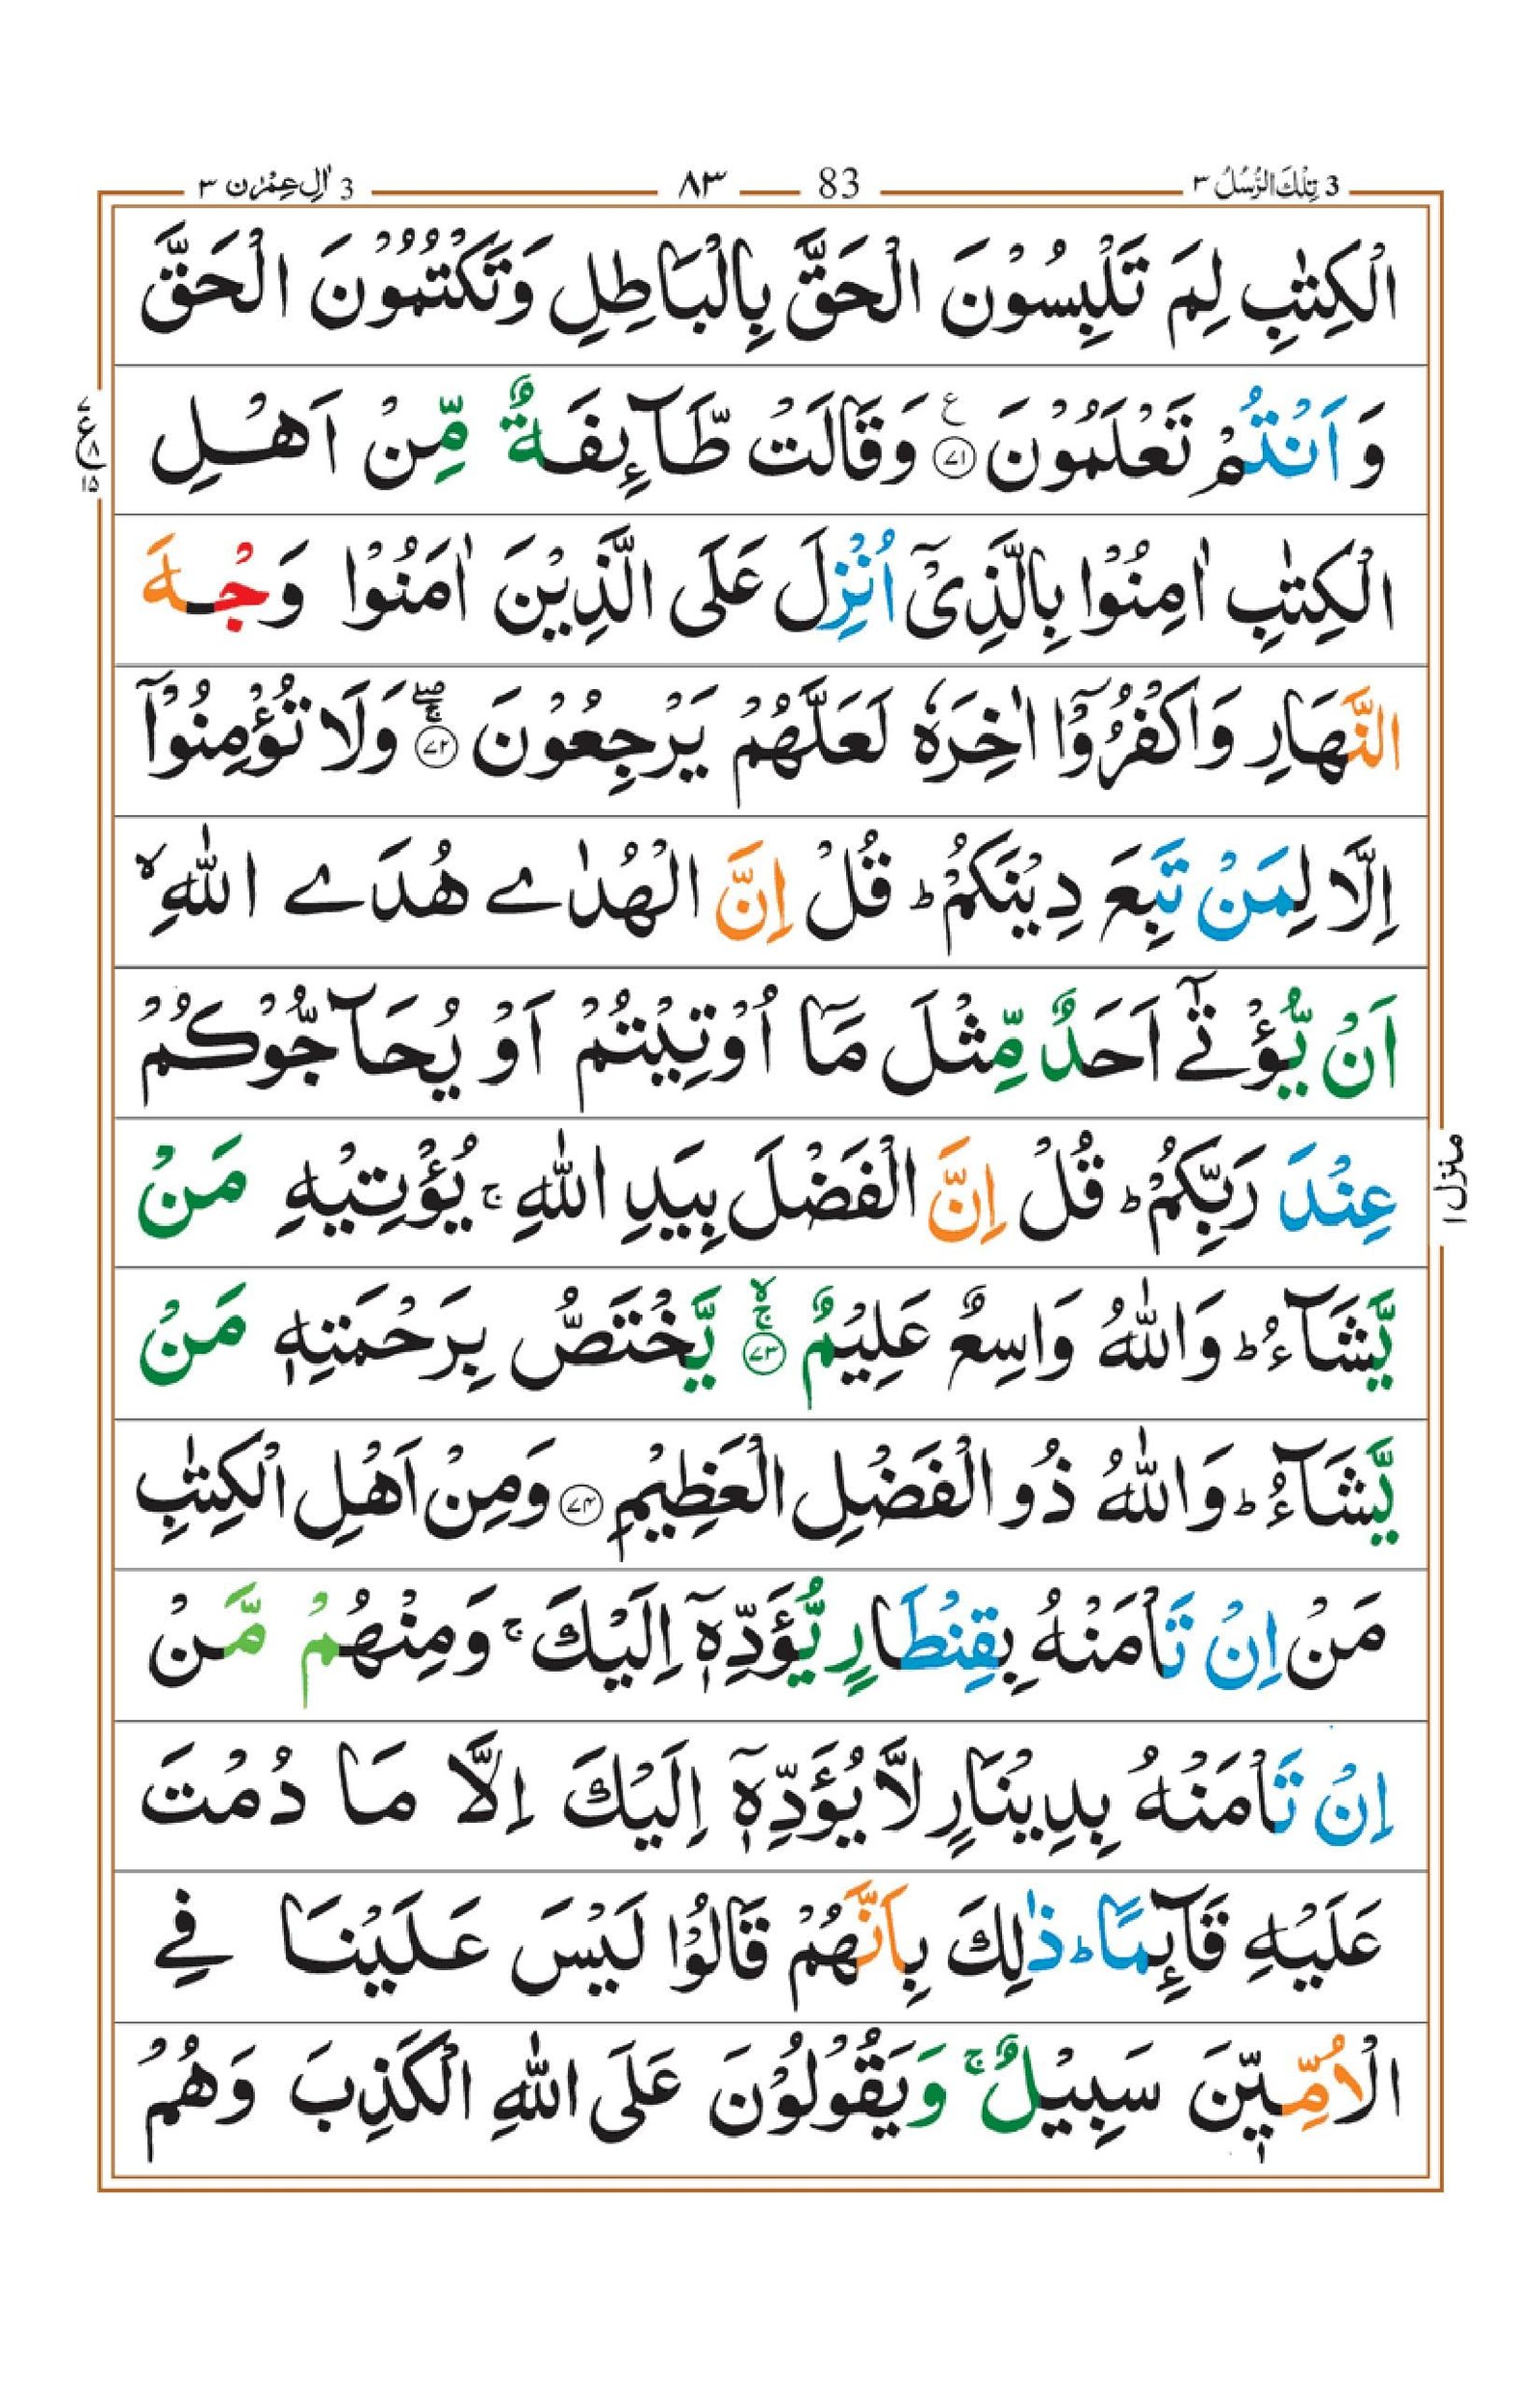 3 تِلْكَ الرُّسُلُ ٣ 83 ٨٣ 3 اٰلِ عِمْرٰن ٣
الْكِتٰبِ لِمَ تَلْبِسُوْنَ الْحَقَّ بِالْبَاطِلِ وَتَكْتُمُوْنَ الْحَقَّ
وَاَنْتُمْ تَعْلَمُوْنَ ۧ‏﴿۷۱﴾ وَقَالَتْ طَّآىِٕفَةٌ مِّنْ اَهْلِ
ع ۷ ۸ ۱۵
الْكِتٰبِ اٰمِنُوْا بِالَّذِىْۤ اُنْزِلَ عَلَى الَّذِيْنَ اٰمَنُوْا وَجْهَ
النَّهَارِ وَاكْفُرُوْۤا اٰخِرَهٗ لَعَلَّهُمْ يَرْجِعُوْنَ ۚۖ‏﴿۷۲﴾ وَلَا تُؤْمِنُوْۤا
اِلَّا لِمَنْ تَبِعَ دِيْنَكُمْ ؕ قُلْ اِنَّ الْهُدٰے هُدَے اللّٰهِ ۙ
اَنْ يُّؤْتٰٓے اَحَدٌ مِّثْلَ مَاۤ اُوْتِيْتُمْ اَوْ يُحَآجُّوْكُمْ
عِنْدَ رَبِّكُمْ ؕ قُلْ اِنَّ الْفَضْلَ بِيَدِ اللّٰهِ ۚ يُؤْتِيْهِ مَنْ
منزل ۱
يَّشَآءُ ؕ وَاللّٰهُ وَاسِعٌ عَلِيْمٌ ۚۙ‏﴿۷۳﴾ يَّخْتَصُّ بِرَحْمَتِهٖ مَنْ
يَّشَآءُ ؕ وَاللّٰهُ ذُو الْفَضْلِ الْعَظِيْمِ ﴿۷۴﴾ وَمِنْ اَهْلِ الْكِتٰبِ
مَنْ اِنْ تَاْمَنْهُ بِقِنْطَارٍ يُّؤَدِّهٖۤ اِلَيْكَ ۚ وَمِنْهُمْ مَّنْ
اِنْ تَاْمَنْهُ بِدِيْنَارٍ لَّا يُؤَدِّهٖۤ اِلَيْكَ اِلَّا مَا دُمْتَ
عَلَيْهِ قَآىِٕمًا ؕ ذٰلِكَ بِاَنَّهُمْ قَالُوْا لَيْسَ عَلَيْنَا فِے
الْاُمِّيّٖنَ سَبِيْلٌ ۚ وَيَقُوْلُوْنَ عَلَى اللّٰهِ الْكَذِبَ وَهُمْ